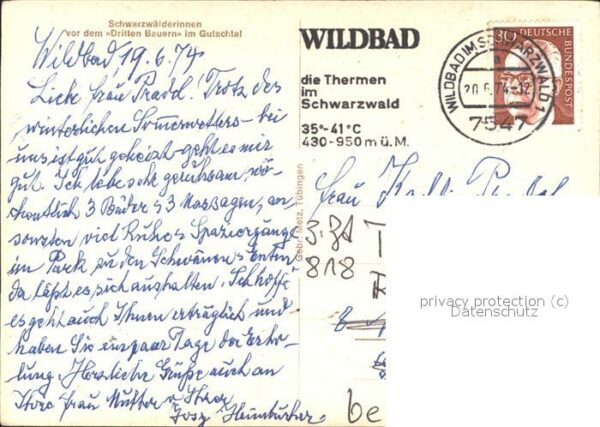 Schwarzwälderinnen
vor dem »Dritten Bauern« im Gutachtal
Wildbad, 19.6.74
Liebe Frau Trotz des
winterlichen Sommerwetters - bei
uns ist gut geheizt - geht es mir
gut. Ich lebe sehr geruhsam, wö-
chentlich 3 Bäder u 3 Massagen, an-
sonsten viel Ruhe u Spaziergänge
im Park zu den Schwänen u Enten
da läßt es sich aushalten. Ich hoffe
es geht auch Ihnen erträglich und
haben Sie ein paar Tage der Erho-
lung. Herzliche Grüße auch an
Ihre Frau Mutter v Ihrer
Gebr. Metz, Tübingen
WILDBAD
die Thermen
im
Schwarzwald
35°-41°C
430-950 m ü.M.
WILDBAD IM SCHWARZWALD 1
a
20.6.74-12
7547
30
DEUTSCHE
BUNDESPOST
Frau
818
8
be
privacy protection (c)
Datenschutz